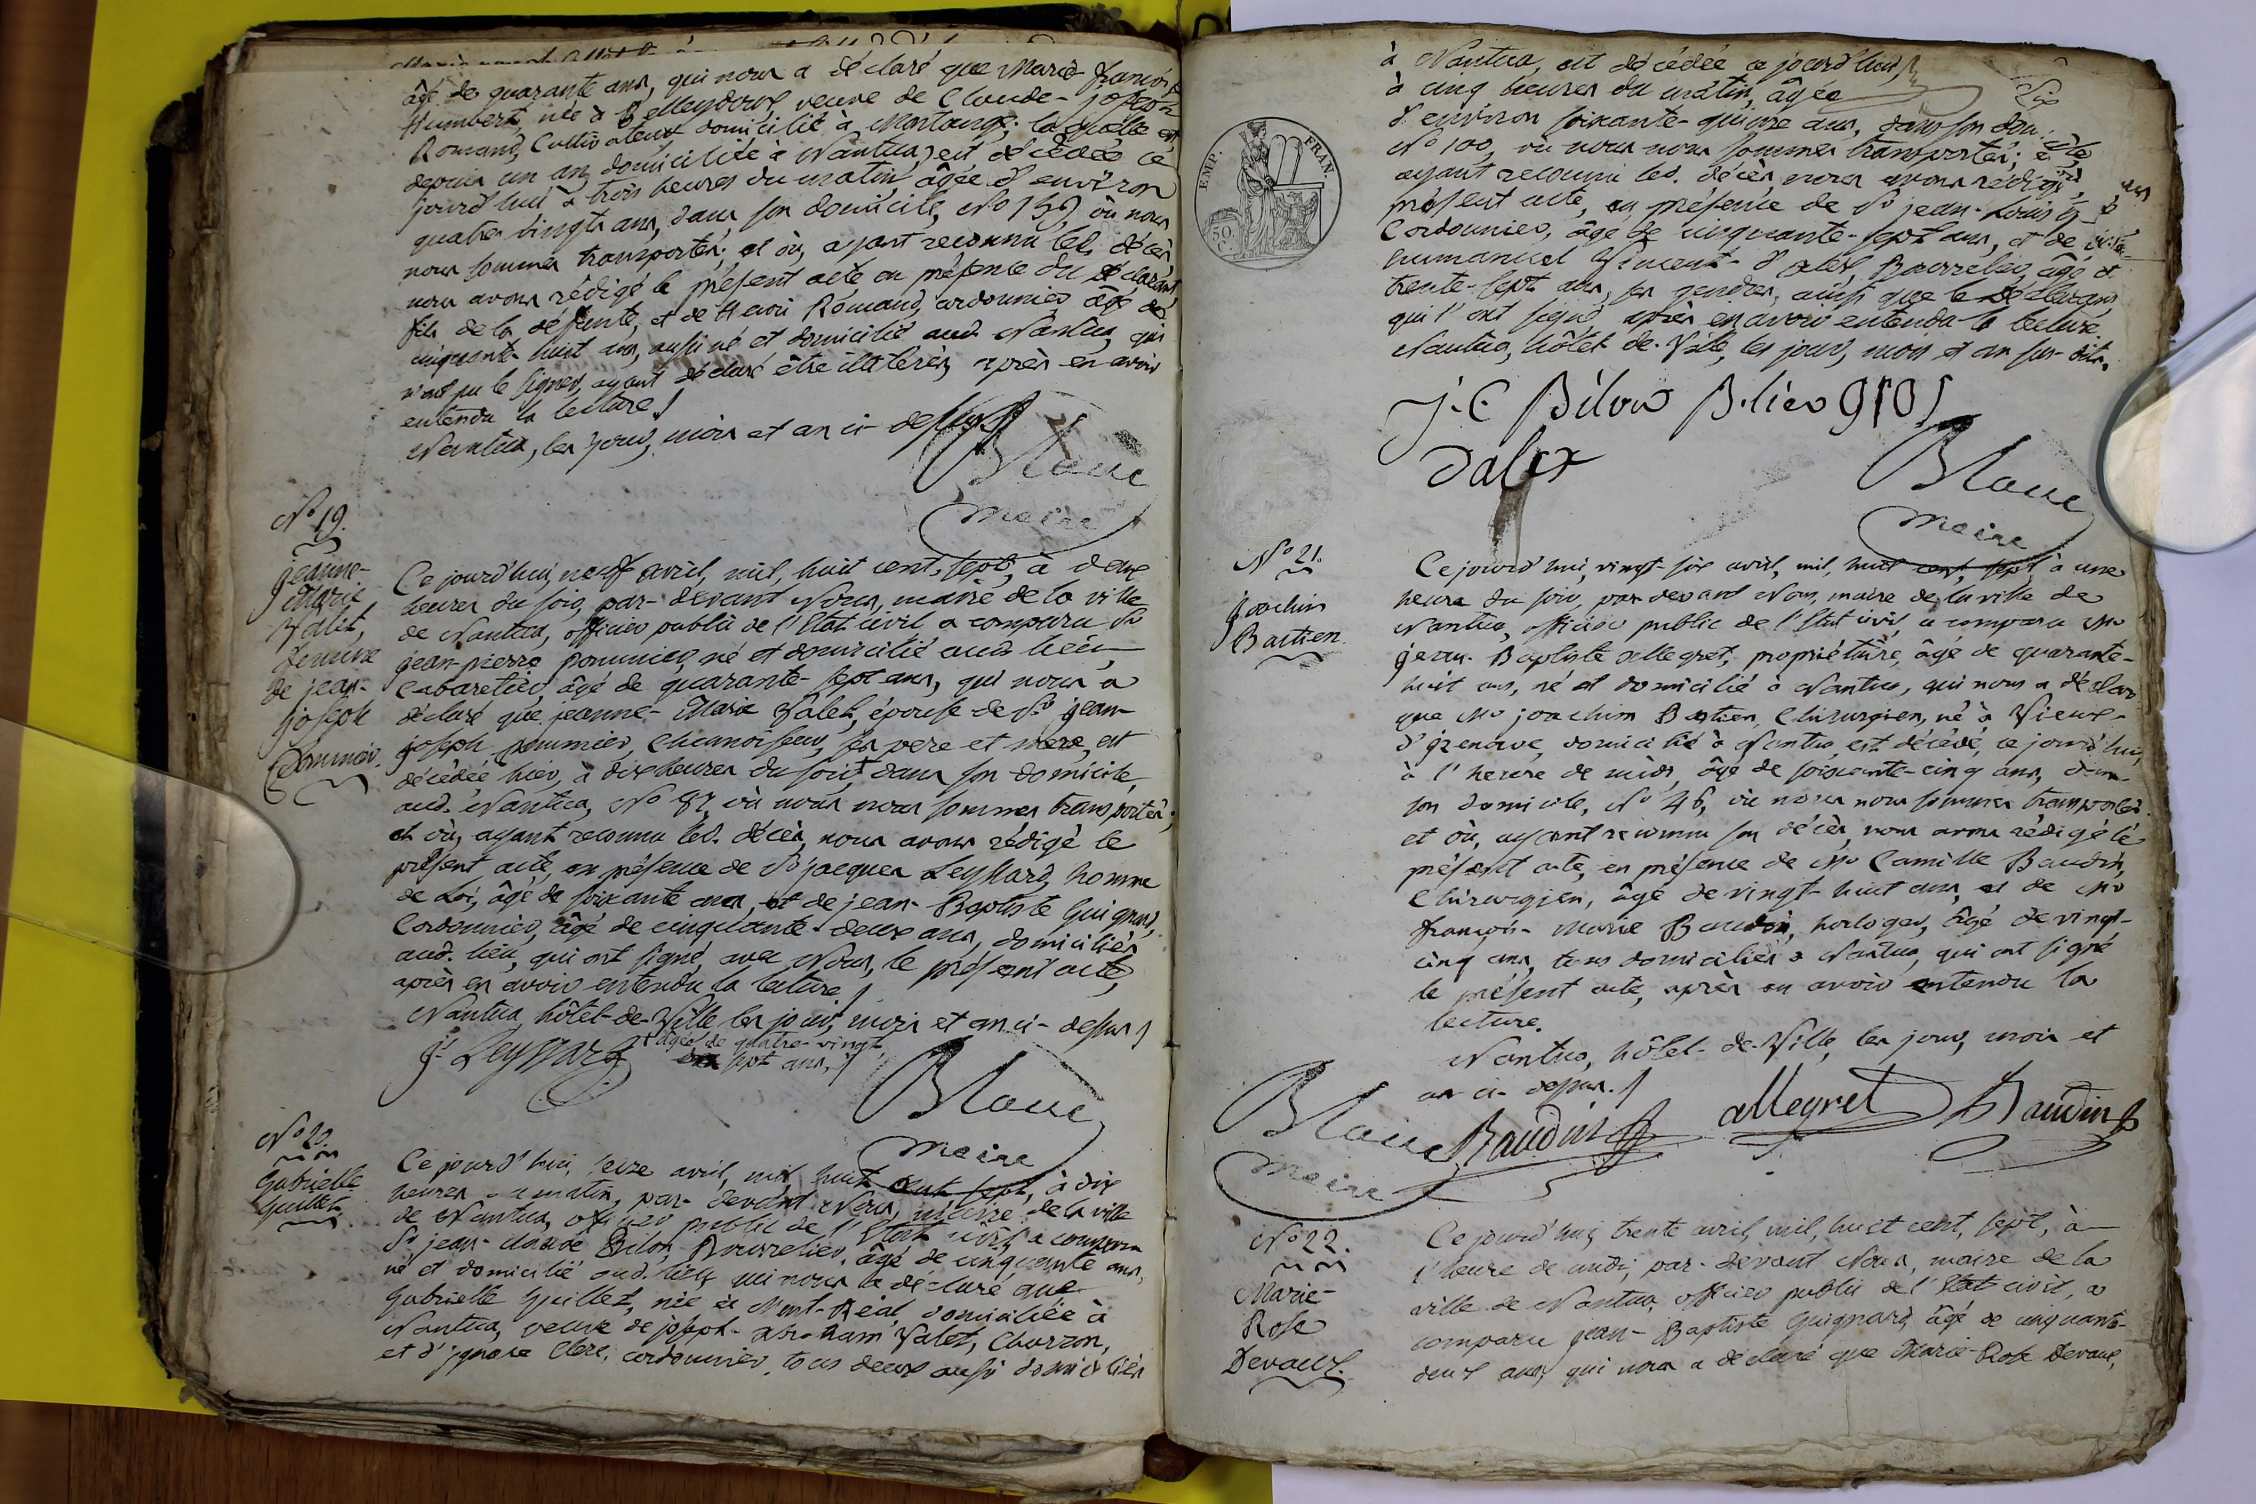 âgé de quarante ans, qui nous a déclaré que Marie françoise
Humbert, née à Belleydoux, veuve de Claude-joseph
Romand, Cultivateur domicilié à Martang; laquelle est,
depuis un an domiciliée à Nantua, est décédée ce
jourd'hui à trois heures du matin, âgée d'environ
quatre vingts ans, dans son domicile, No 159 où nous
nous sommes transportés; et où, ayant reconnu led. décès
nous avons rédigé le présent acte en présence du déclarant
fils de la défunte, et de Henri Romand, cordonnier âgé de
cinquante-huit ans, aussi né et domicilié aud. Nantua, qui
n'ont pu le signer, ayant déclaré être illiterés, après en avoir
entendu la lecture./
Nantua, les jour, mois et an ci-dessus./
Blanc
maire
No 19.
jeanne-
Marie
Valet,
femme
de jean-
joseph
Pommier.
Ce jourd'hui, neuf avril, mil, huit cent, sept, à deux
heures du soir, par-devant Nous, maire de la ville
de Nantua, officier public de l'Etat civil a comparu Sr
jean-pierre pommier, né et domicilié aud. lieu,
Cabaretier, âgé de quarante-sept ans, qui nous a
déclaré que jeanne-Marie Valet, épouse de Sr jean-
joseph pommier, Chamoiseur, ses pere et mere, est
décédée hier, à dix heures du soir, + dans son domicile,
aud. Nantua, No 87, où nous nous sommes transportés;
et où, ayant reconnu led. décès, nous avons rédigé le
présent acte, en présence de Sr jacques Leyssard, homme
de Loi, âgé de soixante ans, et de jean-Baptiste Guignard,
Cordonnier, âgé de cinquante-deux ans, domiciliés
aud. lieu, qui ont signé, avec Nous, le présent acte,
après en avoir entendu la lecture./
Nantua, hôtel-de-Ville les jour, mois et an ci-dessus./
+ âgée de quatre-vingt
sept ans, /
J. Leyssard
Blanc
maire
No 20.
Gabrielle
Guillet.
Ce jourd'hui, seize avril, mil, huit cent, sept, à dix
heures du matin, par-devant Nous, maire de la ville
de Nantua, officier public de l'Etat civil, a comparu
Sr jean-claude Bilon, Bourrelier, âgé de cinquante ans,
né et domicilié aud. lieu, qui nous a déclaré que
Gabrielle Guillet, née à Mont-Réal, domiciliée à
Nantua, veuve de joseph-abraham Valet, Charron,
et d'ignace Clerc, cordonnier, tous deux aussi domiciliés
EMP. FRAN.
50 C.
à Nantua, est décédée ce jourd'hui
à cinq heures du matin, âgée
d'environ soixante-quinze ans, dans son dom
No 100, où nous nous sommes transportés;
ayant reconnu led. décès, nous avons rédigé
présent acte, en présence de Sr jean-Louis
Cordonnier, âgé de cinquante-sept ans, et de
humanuel Vincent-d'alex, Bourrelier, âgé de
trente-sept ans, ses gendres, ainsi que le déclarant
qui l'ont signé après en avoir entendu la lecture
Nantua, hôtel-de-Ville, les jour, mois et an sus-dits.
J. C Bilon
Dalex
Blanc
maire
No 21.
Joachim
Bastien.
Ce jourd'hui, vingt-six avril, mil, huit cent, sept, à une
heure du soir, par devant Nous, maire de la ville de
Nantua, officier public de l'Etat civil a comparu Mr
jean-Baptiste allegret, propriétaire, âgé de quarante-
huit ans, né et domicilié à Nantua, qui nous a déclaré
que Mr joachim Bastien, Chirurgien, né à Vieux-
d'izenave, domicilié à Nantua est décédé, ce jourd'hui,
à l'heure de midi, âgé de soixante-cinq ans, dans
son domicile, No 46, où nous nous sommes transportés.
et où, ayant reconnu son décès, nous avons rédigé le
présent acte, en présence de Mr Camille Baudin,
Chirurgien, âgé de vingt-huit ans, et de Mr
françois-Marie Baudin, horloger, âgé de vingt-
cinq ans, tous domiciliés à Nantua, qui ont signé
le présent acte, après en avoir entendu la
lecture.
Nantua, hôtel-de-Ville, les jour, mois et
an ci-dessus./
Blanc
maire
Baudin
allegret
Baudin
No 22.
Marie-
Rose
Devaux.
Ce jourd'hui, trente avril, mil, huit cent, sept, à
l'heure de midi, par-devant Nous, maire de la
ville de Nantua, officier public de l'Etat civil, a
comparu jean-Baptiste Guignard, âgé de cinquante-
deux ans, qui nous a déclaré que Marie-Rose Devaux,